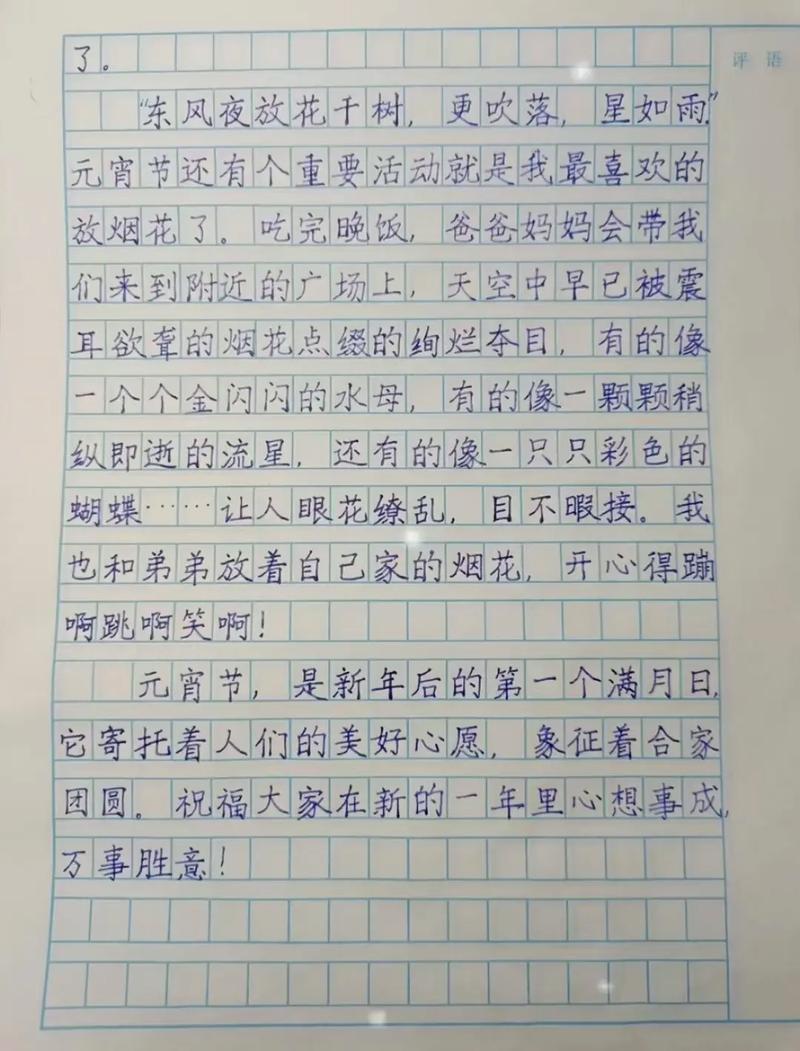 评 语
了。
“东风夜放花千树，更吹落，星如雨。”
元宵节还有个重要活动就是我最喜欢的
放烟花了。吃完晚饭，爸爸妈妈会带我
们来到附近的广场上，天空中早已被震
耳欲聋的烟花点缀的绚烂夺目，有的像
一个个金闪闪的水母，有的像一颗颗稍
纵即逝的流星，还有的像一只只彩色的
蝴蝶……让人眼花缭乱，目不暇接。我
也和弟弟放着自己家的烟花，开心得蹦
啊跳啊笑啊！
元宵节，是新年后的第一个满月日，
它寄托着人们的美好心愿，象征着合家
团圆。祝福大家在新的一年里心想事成，
万事胜意！